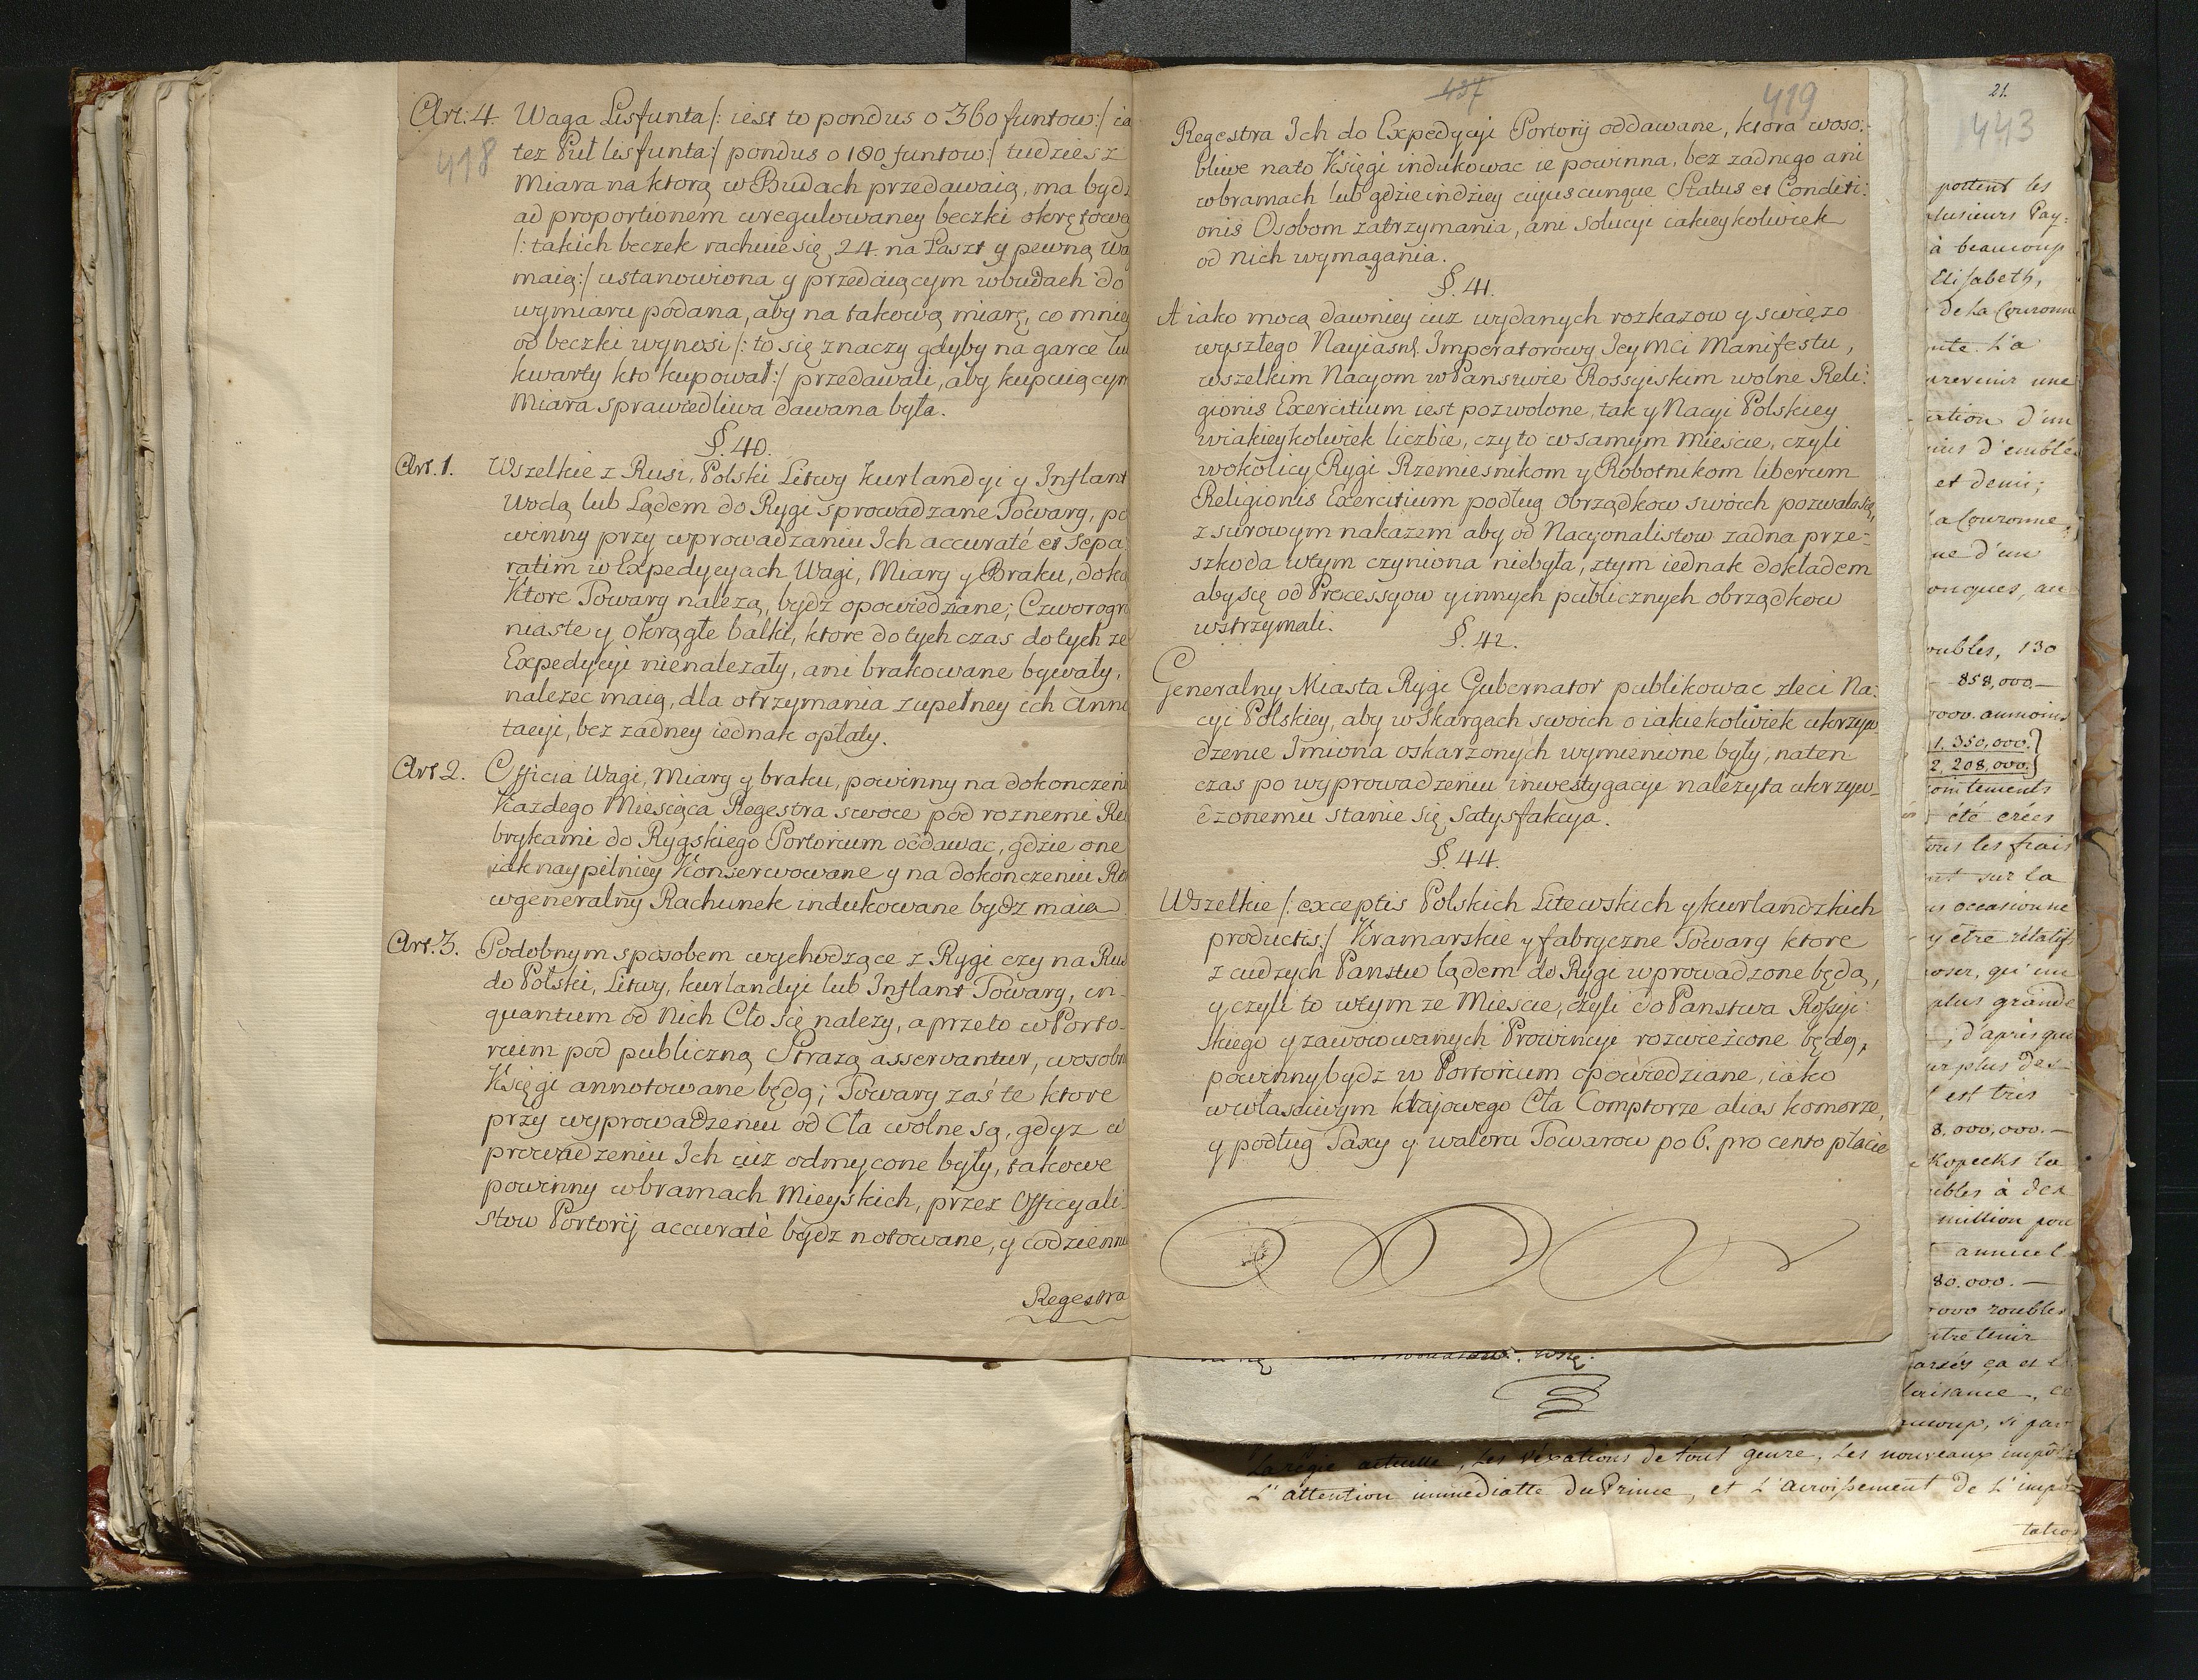 418
Art: 4. Waga Lisfunta /: iest to pondus o 360 funtow :/ ia
tez Puł lisfunta :/ pondus o 180 funtow :/ tudziesz
Miara na ktorą w Budach przedawaią, ma bydz
ad proportionem uregulowaney beczki okrętowey
/: takich beczek rachuie się 24. na Łaszt y pewną Wa
maią :/ ustanowiona y przedaiącym w budach do
wymiaru podana, aby na takową miarę, co mniey
od beczki wynosi /: to się znaczy gdyby na garce lub
kwarty kto kupował :/ przedawali, aby kupuiącym
Miara sprawiedliwa dawana była.
§. 40.
Art. 1. Wszelkie z Rusi, Polski Litwy Kurlandyi y Inflant
Wodą lub Lądem do Rygi sprowadzane Towary, po
winny przy wprowadzaniu Ich accuraté et sepa
ratim w Expedycyach Wagi, Miary y Braku, doką
Ktore Towary nalezą, bydz opowiedziane; Czworogra
niaste y okrągłe balki, ktore do tych czas do tych ze
Expedycyi nienalezały, ani brakowane bywały,
nalezec maią, dla otrzymania zupełney ich Anno
tacyi, bez zadney iednak opłaty.
Art 2. Officia Wagi, Miary y braku, powinny na dokonczeniu
Kazdego Miesiąca Regestra swoie pod roznemi Ru
brykami do Rygskiego Portorium oddawac, gdzie one
iak naypilniey Konserwowane y na dokonczeniu Ro
w generalny Rachunek indukowane bydz maią
Art. 3. Podobnym sposobem wychodzące z Rygi czy na Rus
do Polski, Litwy, Kurlandyi lub Inflant Towary, in
quantum od Nich Cło się nalezy, a przeto w Porto-
rium pod publiczną Strazą asservantur, w osobne
Księgi annotowane będą; Towary zaś te ktore
przy wyprowadzeniu od Cła wolne są, gdyz w
prowadzeniu Ich iuz odmycone były, takowe
powinny w bramach Mieyskich, przez Officyali-
stow Portorij accuraté bydz notowane, y codziennie
Regestra
437
419
Regestra Ich do Expedycyi Portorij oddawane, ktora w oso:
bliwe na to Księgi indukowac ie powinna, bez zadnego ani
w bramach lub gdzieindziey cuiuscunque Status et Conditi:
onis Osobom zatrzymania, ani solucyi iakieykolwiek
od nich wymagania.
§. 41.
A iako mocą dawniey iuz wydanych rozkazow y swiezo
wyszłego Nayiasnl. Imperatorowy Iey Mci Manifestu,
wszelkim Nacyom w Panstwie Rossyiskim wolne Reli:
gionis Exercitium iest pozwolone, tak y Nacyi Polskiey
w iakieykolwiek liczbie, czy to w samym Miescie, czyli
w okolicy Rygi Rzemiesnikom y Robotnikom liberum
Religionis Exercitium podług Obrządkow swoich pozwala się,
z surowym nakazem aby od Nacyonalistow zadna prze-
szkoda w tym czyniona niebyła, z tym iednak dokładem
aby się od Processyow y innych publicznych obrządkow
wstrzymali.
§. 42.
Generalny Miasta Rygi Gubernator publikowac zleci Na:
cyi Polskiey, aby w Skargach swoich o iakiekolwiek ukrzyw
dzenie Imiona oskarzonych wymienione były, naten
czas po wyprowadzeniu inwestygacyi nalezyta ukrzyw_
dzonemu stanie się satysfakcya.
§. 44.
Wszelkie /: exceptis Polskich Litewskich y kurlandzkich
productis :/ Kramarskie y fabryczne Towary ktore
z cudzych Panstw lądem do Rygi wprowadzone będą,
y czyli to w tym ze Miescie, czyli do Panstwa Rossyi:
skiego y zawoiowanych Prowincyi rozwiezione będą,
powinny bydz w Portorium opowiedziane, iako
w własciwym kraiowego Cła Comptorze alias komorze,
y podług Taxy y waloru Towarow po 6. pro cento płacic
21.
443
portent les
plusieurs Pay:
à beaucoup
Elisabeth,
De la Couronne
L'a
une
d'un
et demi;
la Couronne,
d'un
130
858,000.—
1,350,000.
2,208,000.
été crées
tous les frais
sur la
occasionné
y etre rélatif
qu'un
plus grande
d'après que
est très
8,000,000.—
Kopecks la
à des
million pour
annuel
80.000.—
roubles
La régie actuelle, les véxations de tout genre, les nouveaux impôts
L'attention immédiatte du Prince, et L'accroissement de L'impo
tation